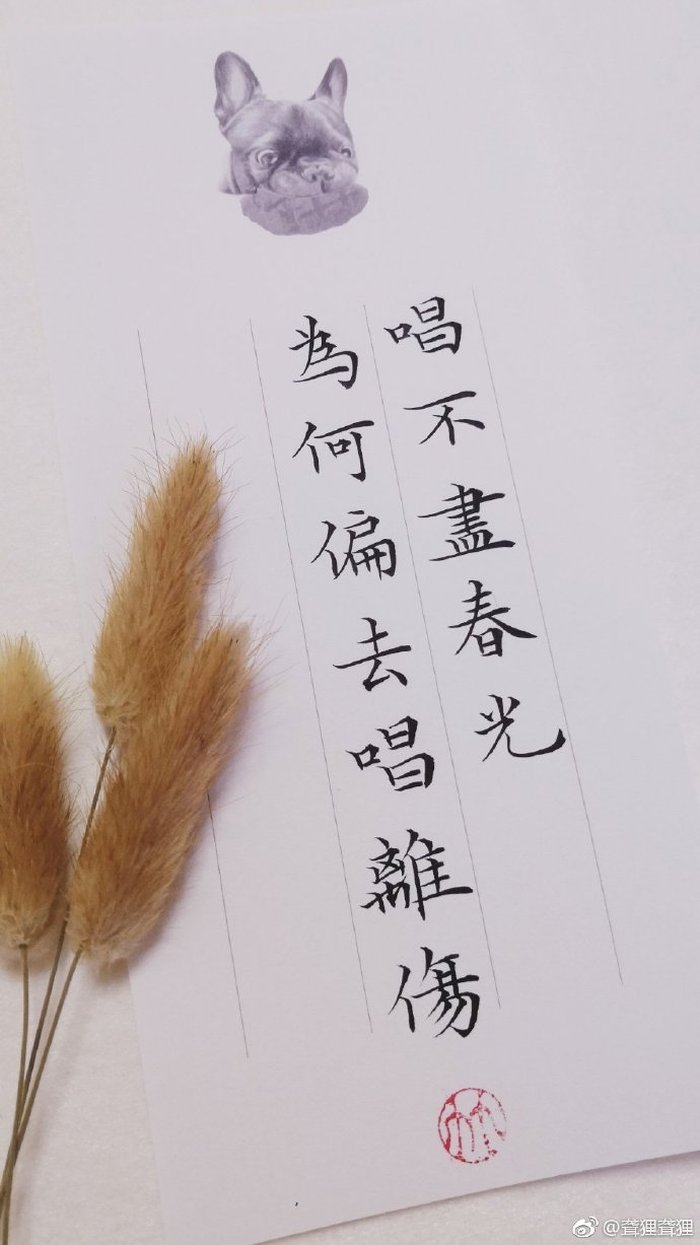 唱不盡春光
為何偏去唱離傷
@聋狸聋狸